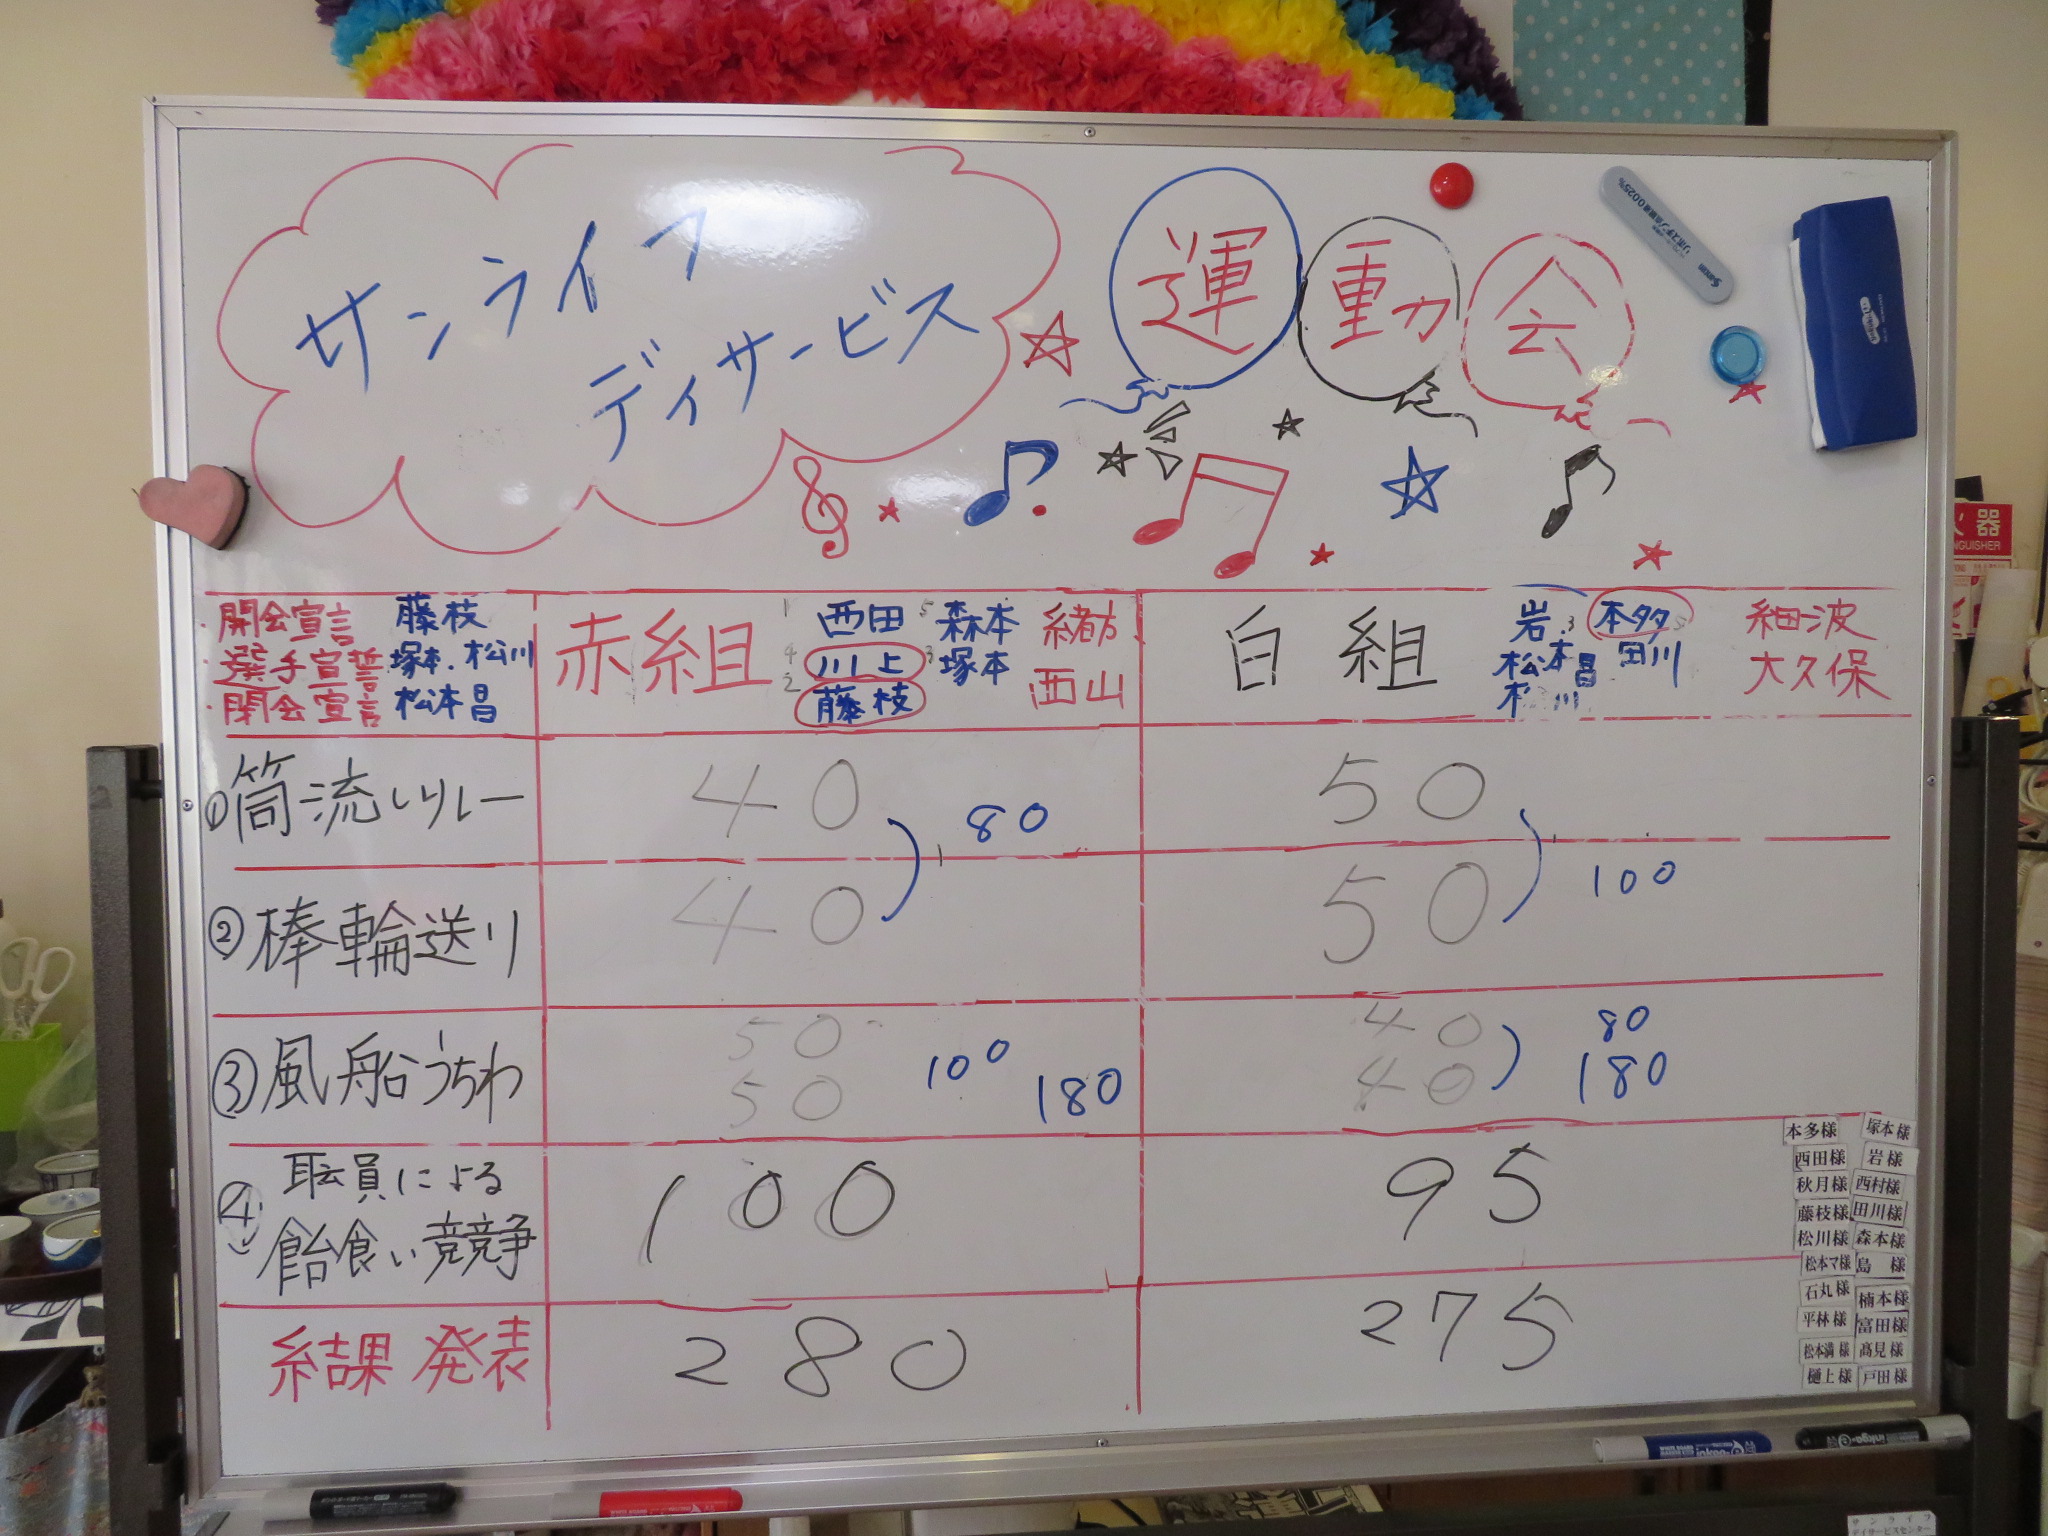 サンライフ
ディサービス
運動会
・開会宣言 藤枝
・選手宣誓 塚本.松川
・閉会宣言 松本昌
赤組
1 西田 5 森本 緒方
4 川上 3 塚本 西山
2 藤枝
白組
岩 3 本多 5 細波
松本昌 田川 大久保
①筒流しリレー 40 80 50
②棒輪送り 40 50 100
③風船うちわ 50 100 40 80
50 180 40 180
④職員による
飴食い競争 100 95
結果発表 280 275
本多様 塚本様
西田様 岩様
秋月様 西村様
藤枝様 田川様
松川様 森本様
松本マ様 島様
石丸様 楠本様
平林様 富田様
松本満様 髙見様
樋上様 戸田様
器
サンライフ
デイサービスセンター